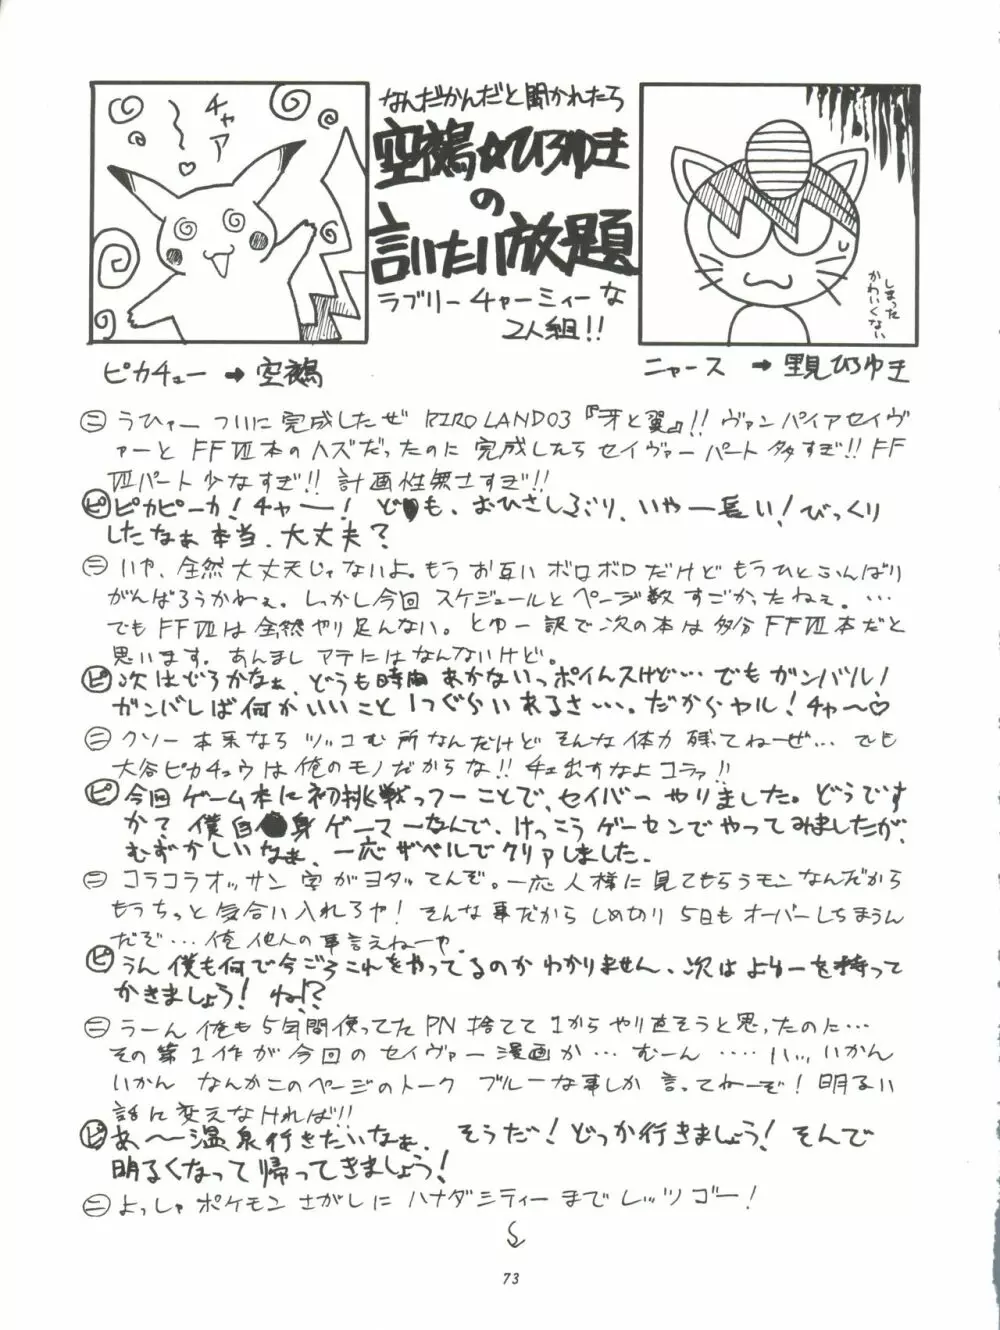 チャア
〜♡
なんだかんだと聞かれたら
空鵺☆ひろゆき
の
言いたい放題
ラブリーチャーミィーな
2人組!!
しまった
かわいくない
ピカチュー→空鵺
ニャース→里見ひろゆき
㊁ うひゃー ついに完成したぜ RIRO LAND03『牙と翼』!! ヴァンパイアセイヴ
ァーと FFⅦ本のハズだったのに 完成したらセイヴァーパート多すぎ!! FF
Ⅶパート少なすぎ!! 計画性無さすぎ!!
ピ ピカピーカ! チャー! ども、おひさしぶり、いやー長い! びっくり
したなぁ本当、大丈夫?
ニ いや、全然大丈夫じゃないよ。もうお互いボロボロだけどもうひとふんばり
がんばろうかねぇ。しっかし今回スケジュールとページ数すごかったねぇ。…
でもFFⅦは全然やり足んない。とゆー訳で次の本は多分FFⅦ本だと
思います。あんましアテにはなんないけど。
ピ 次はどうかなぁ、どうも時間あかないっポイんスけど… でもガンバル!
ガンバしば何かいいこと1つぐらいあるさ…。だからヤル! チャ〜♡
ニ クソー本来ならツッコむ所なんだけどそんな体力残ってねーぜ… でも
大谷ピカチュウは俺のモノだからな!! チェ出すなよコラァ!!
ピ 今回ゲーム本に初挑戦っつーことで、セイバーやりました。どうです
か? 僕自身ゲーマーなんで、けっこうゲーセンでやってみましたが、
むずかしいなぁ、一応ザベルでクリアしました。
ニ コラコラオッサン字がヨタッてんぞ。一応人様に見てもらうモンなんだから
もうちっと気合い入れろや! そんな事だからしめ切り5日もオーバーしちまうん
だぞ… 俺他人の事言えねーや。
ピ うん僕も何で今ごろこれをやってるのかわかりません、次はよゆーを持って
かきましょう! ね!?
ニ うーん俺も5年間使ってたPN捨てて1からやり直そうと思ったのに…
その第1作が今回のセイヴァー漫画か… むーん …… ハッ、いかん
いかん なんかこのページのトーク ブルーな事しか言ってねーぞ! 明るい
話に変えなければ!!
ピ あ〜温泉行きたいなぁ、そうだ! どっか行きましょう! そんで
明るくなって帰ってきましょう!
ニ よっしゃポケモンさがしにハナダシティーまでレッツゴー!
73